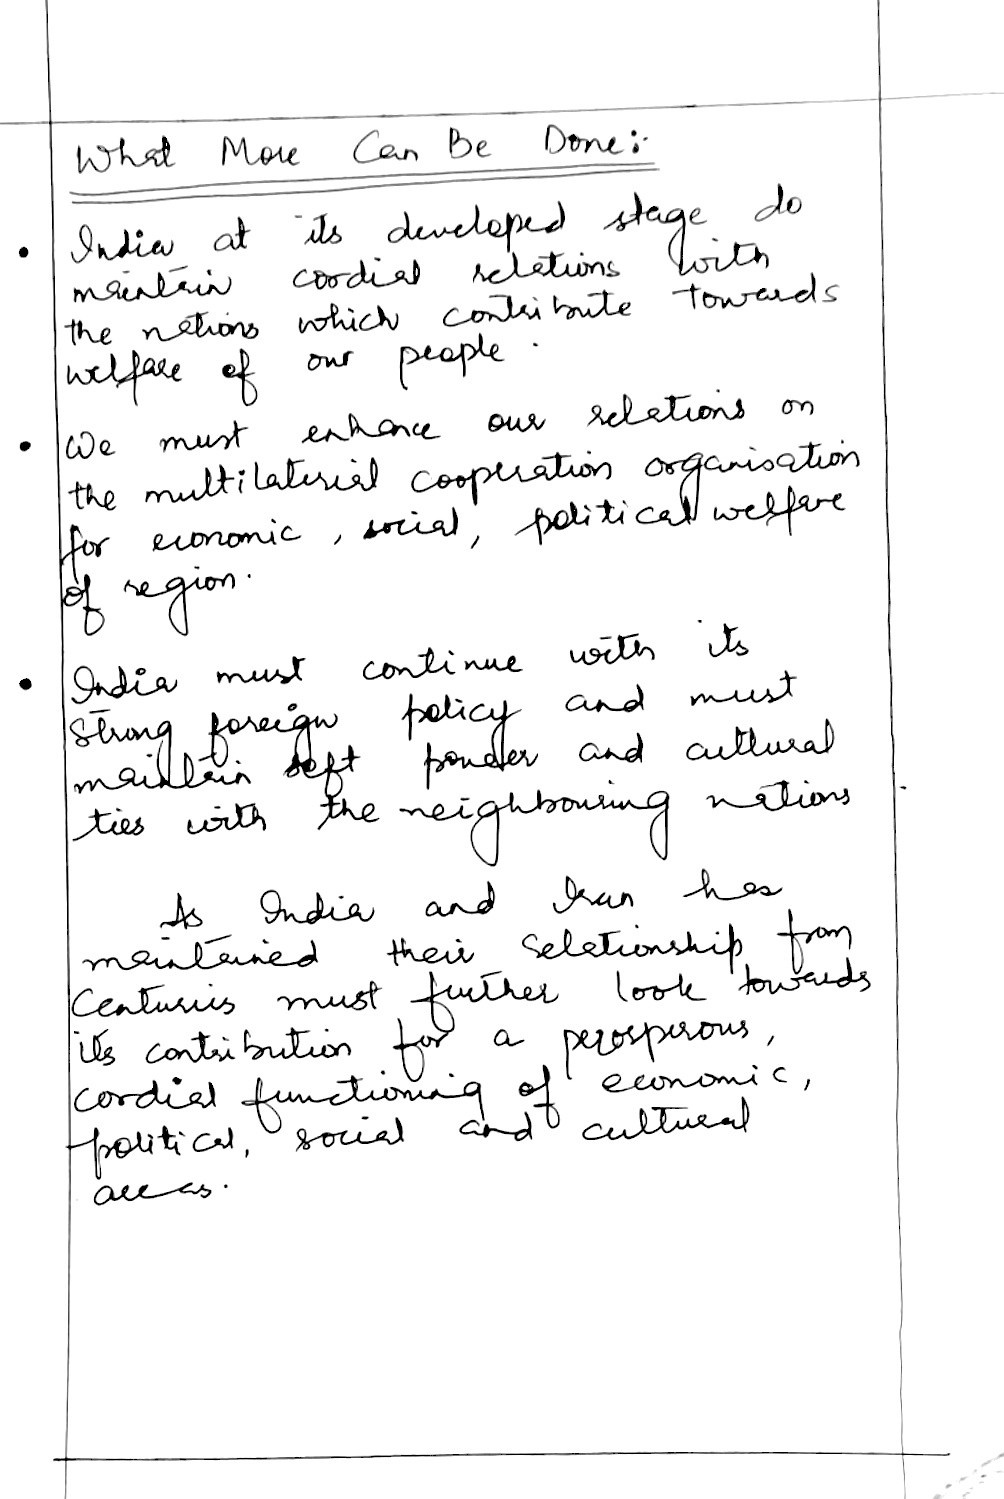 What More Can Be Done:-
• India at its developed stage do
maintain cordial relations with
the nations which contribute towards
welfare of our people.
• We must enhance our relations on
the multilaterial cooperation organisation
for economic, social, political welfare
of region.
• India must continue with its
strong foreign policy and must
maintain soft power and cultural
ties with the neighbouring nations
As India and Iran has
maintained their relationship from
Centuries must further look towards
its contribution for a perosperous,
cordial functioning of economic,
political, social and cultural
areas.